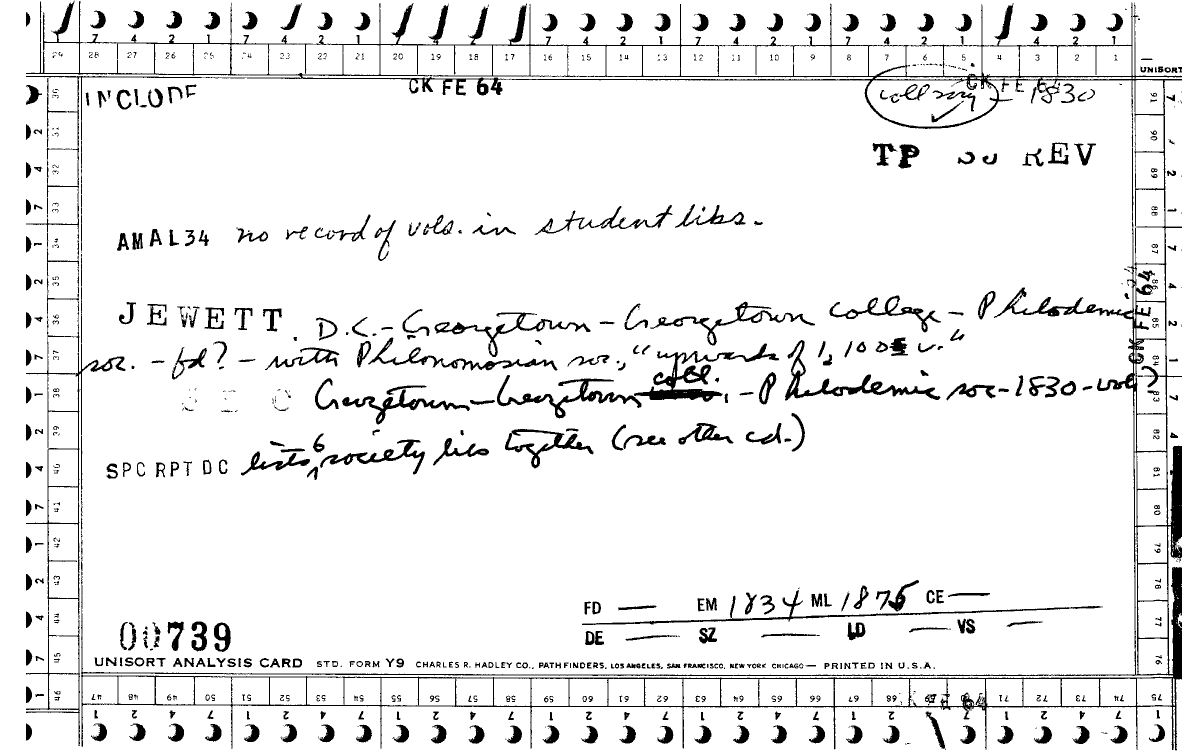 7 4 2 1 7 4 2 1 7 4 2 1 7 4 2 1 7 4 2 1 7 4 2 1 7 4 2 1
29 28 27 26 25 24 23 22 21 20 19 18 17 16 15 14 13 12 11 10 9 8 7 6 5 4 3 2 1
UNISORT
INCLUDE
CK FE 64
CK FE 64
coll soc – 1830
TP REV
AMAL34 no record of vols. in student libs.
JEWETT D.C.-Georgetown-Georgetown College-Philodemic
soc. - fd? - with Philonomosian soc., "upwards of 1,100 v."
Georgetown-Georgetown coll. - Philodemic soc-1830-vols
SPC RPT DC lists 6 society libs together (see other cd.)
CK FE 64
FD — EM 1834 ML 1875 CE —
DE — SZ — LD — VS —
00739
UNISORT ANALYSIS CARD STD. FORM Y9 CHARLES R. HADLEY CO., PATHFINDERS, LOS ANGELES, SAN FRANCISCO, NEW YORK CHICAGO — PRINTED IN U.S.A.
30 31 32 33 34 35 36 37 38 39 40 41 42 43 44 45 46
91 90 89 88 87 86 85 84 83 82 81 80 79 78 77 76 75
47 48 49 50 51 52 53 54 55 56 57 58 59 60 61 62 63 64 65 66 67 68 69 70 71 72 73 74 75
1 2 4 7 1 2 4 7 1 2 4 7 1 2 4 7 1 2 4 7 1 2 4 7 1 2 4 7